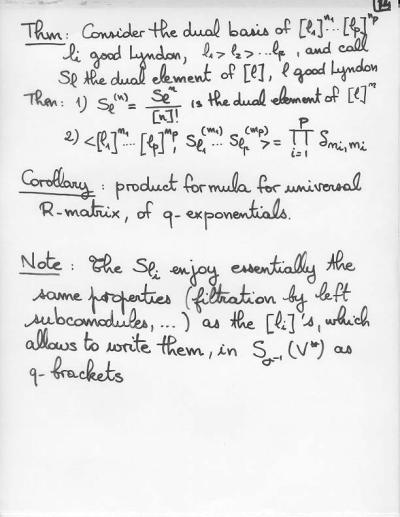 14
Thm: Consider the dual basis of [l₁]^{n₁}...[l_p]^{n_p}
li good Lyndon, l₁ > l₂ > ... l_p, and call
S_l the dual element of [l], l good Lyndon
Then: 1) S_l^{(n)} = S_l^n / [n]! is the dual element of [l]^n
2) <[l₁]^{n₁}...[l_p]^{n_p}, S_{l₁}^{(m₁)}...S_{l_p}^{(m_p)}> = ∏_{i=1}^{p} δ_{n_i,m_i}
Corollary: product formula for universal
R-matrix, of q-exponentials.
Note: The S_{li} enjoy essentially the
same properties (filtration by left
subcomodules, ...) as the [li]'s, which
allows to write them, in S_{σ^{-1}}(V*) as
q-brackets